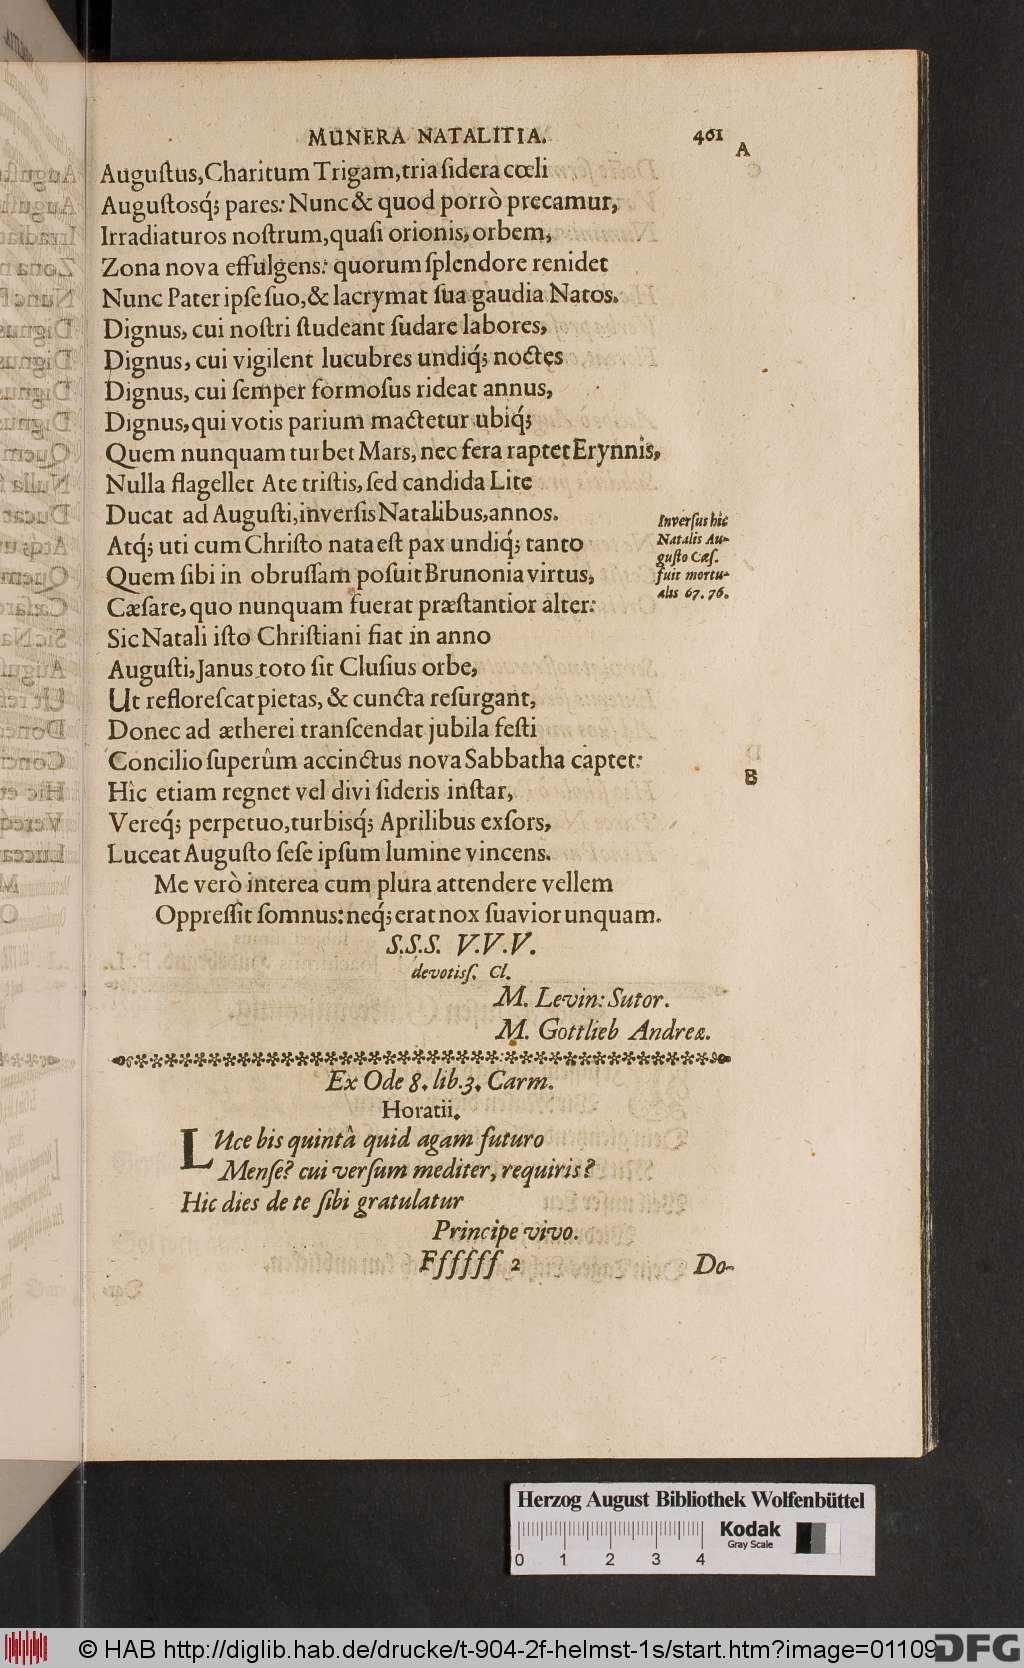 MUNERA NATALITIA. 461
A
Auguſtus, Charitum Trigam, tria ſidera cœli
Auguſtosq́; pares: Nunc & quod porrò precamur,
Irradiaturos noſtrum, quaſi orionis, orbem,
Zona nova effulgens: quorum ſplendore renidet
Nunc Pater ipſe ſuo, & lacrymat ſua gaudia Natos.
Dignus, cui noſtri ſtudeant ſudare labores,
Dignus, cui vigilent lucubres undiq́; noctes
Dignus, cui ſemper formoſus rideat annus,
Dignus, qui votis parium mactetur ubiq́;
Quem nunquam turbet Mars, nec fera raptet Erynnis,
Nulla flagellet Ate triſtis, ſed candida Lite
Ducat ad Auguſti, inverſis Natalibus, annos.
Inverſus hic
Natalis Au-
guſto Cæſ.
fuit mortu-
alis 67. 76.
Atq́; uti cum Chriſto nata eſt pax undiq́; tanto
Quem ſibi in obruſſam poſuit Brunonia virtus,
Cæſare, quo nunquam fuerat præſtantior alter:
Sic Natali iſto Chriſtiani fiat in anno
Auguſti, Janus toto ſit Cluſius orbe,
Ut refloreſcat pietas, & cuncta reſurgant,
Donec ad ætherei tranſcendat jubila feſti
Concilio ſuperûm accinctus nova Sabbatha captet:
B
Hìc etiam regnet vel divi ſideris inſtar,
Vereq́; perpetuo, turbisq́; Aprilibus exſors,
Luceat Auguſto ſeſe ipſum lumine vincens.
Me verò interea cum plura attendere vellem
Oppreſſit ſomnus: neq́; erat nox ſuavior unquam.
S.S.S. V.V.V.
devotiſſ. Cl.
M. Levin: Sutor.
M. Gottlieb Andreæ.
Ex Ode 8. lib. 3. Carm.
Horatii.
LUce bis quintâ quid agam futuro
Menſe? cui verſum mediter, requiris?
Hic dies de te ſibi gratulatur
Principe vivo.
Fſſſſſ 2 Do-
Herzog August Bibliothek Wolfenbüttel
0 1 2 3 4
Kodak
Gray Scale
© HAB http://diglib.hab.de/drucke/t-904-2f-helmst-1s/start.htm?image=01109
DFG